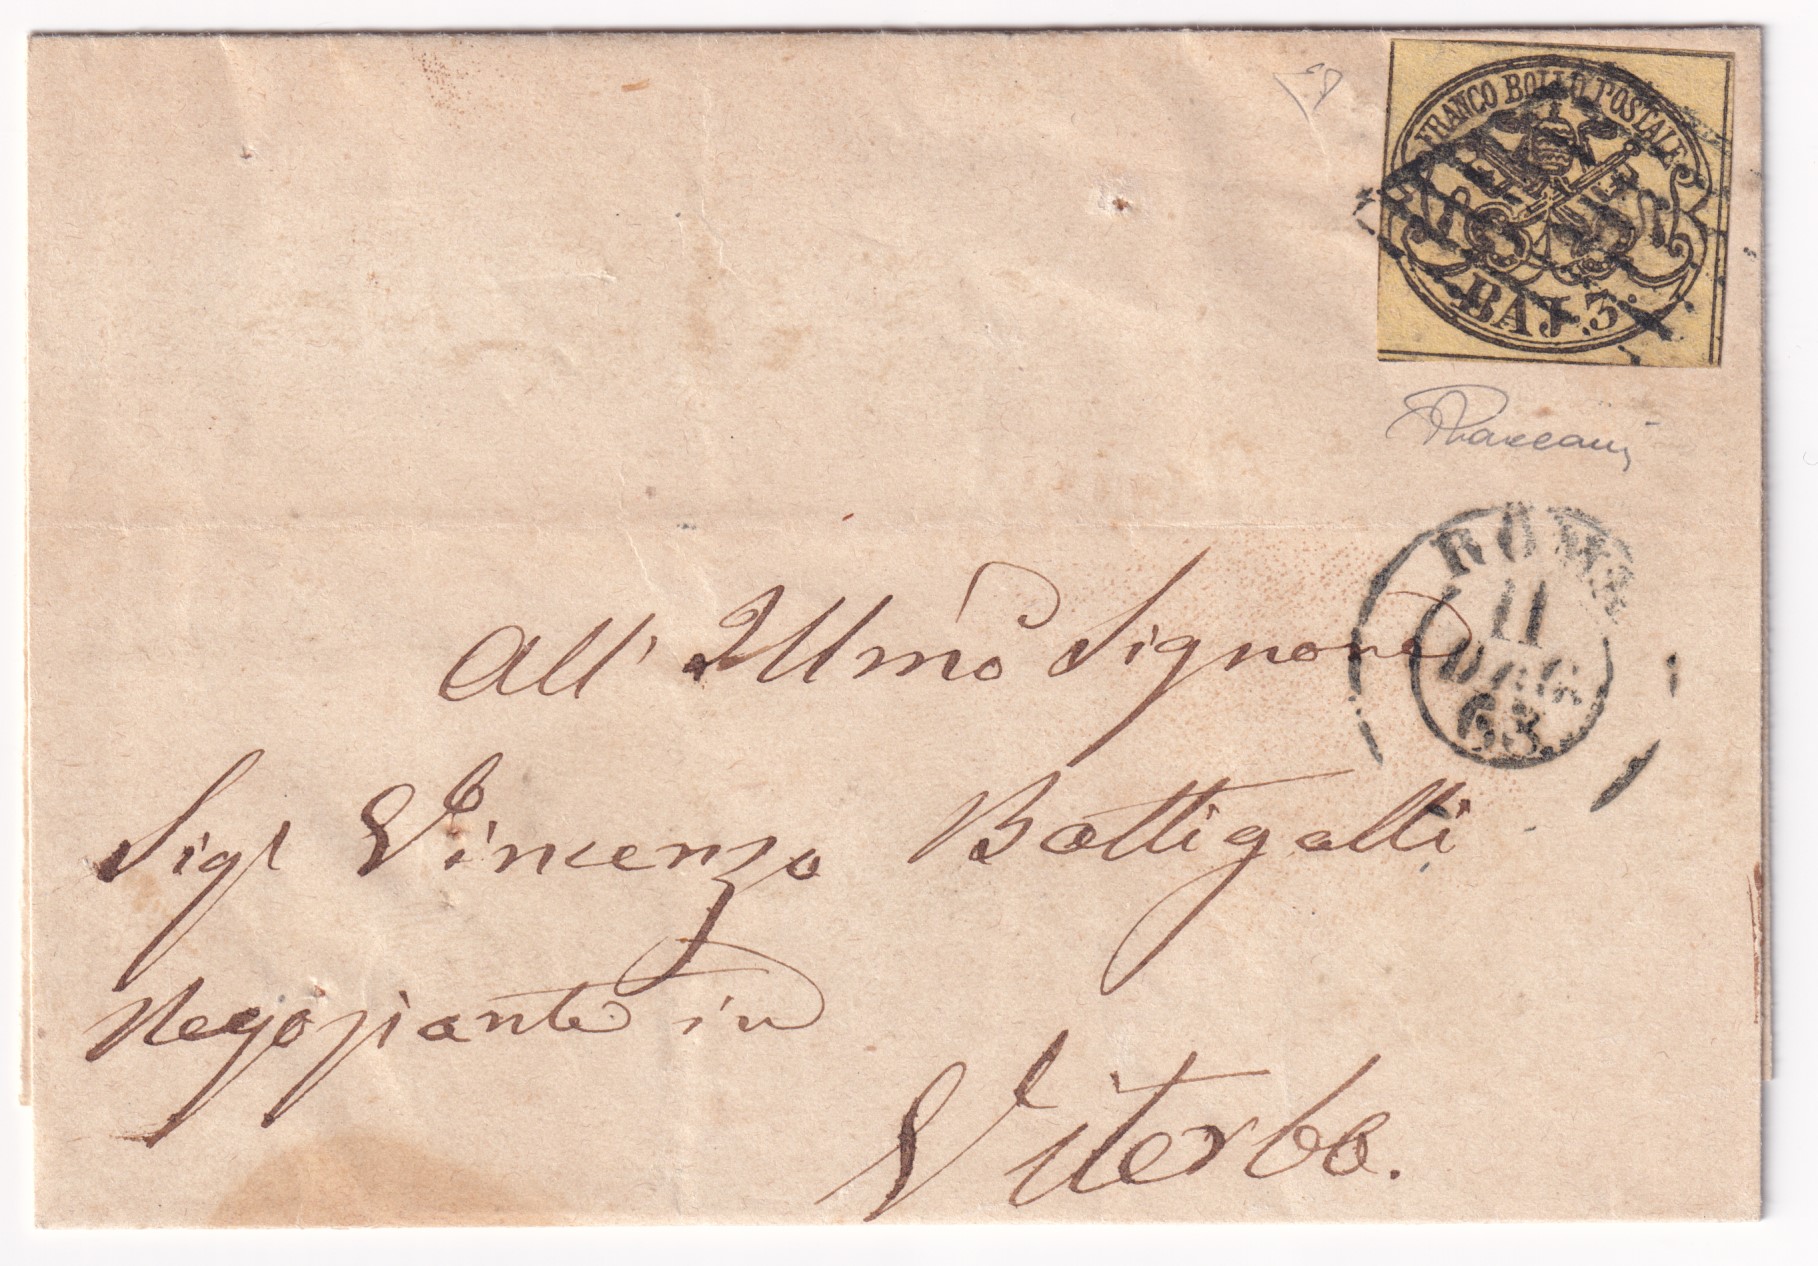 FRANCO BOLLO POSTALE
BAJ. 3.
ROMA
11
DEC.
63
All' Illmo Signore
Sigr Vincenzo Battigalli
Negoziante in
Viterbo.